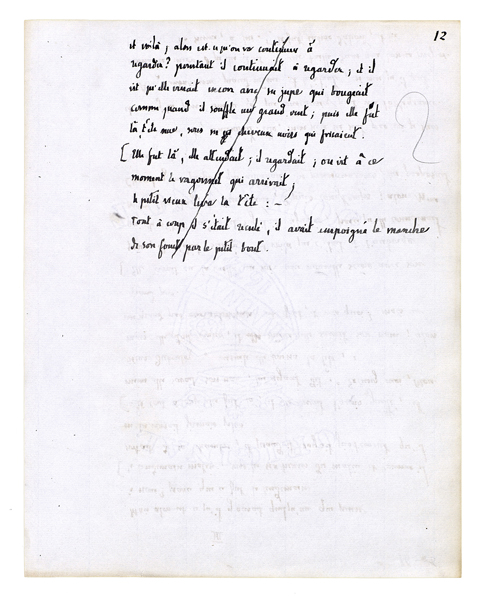 12
et voilà ; alors est-ce qu'on va continuer à
regarder ? pourtant il continuait à regarder ; et il
vit qu'elle venait encore avec sa jupe qui bougeait
comme quand il souffle un grand vent ; puis elle fut
là tête nue, sous ses cheveux noirs qui frisaient.
[Elle fut là, elle attendait ; il regardait ; on vit à ce
moment le wagonnet qui arrivait ;
le petit vieux leva la tête : —
Tout à coup il s'était reculé, il avait empoigné le manche
de son fouet par le petit bout.